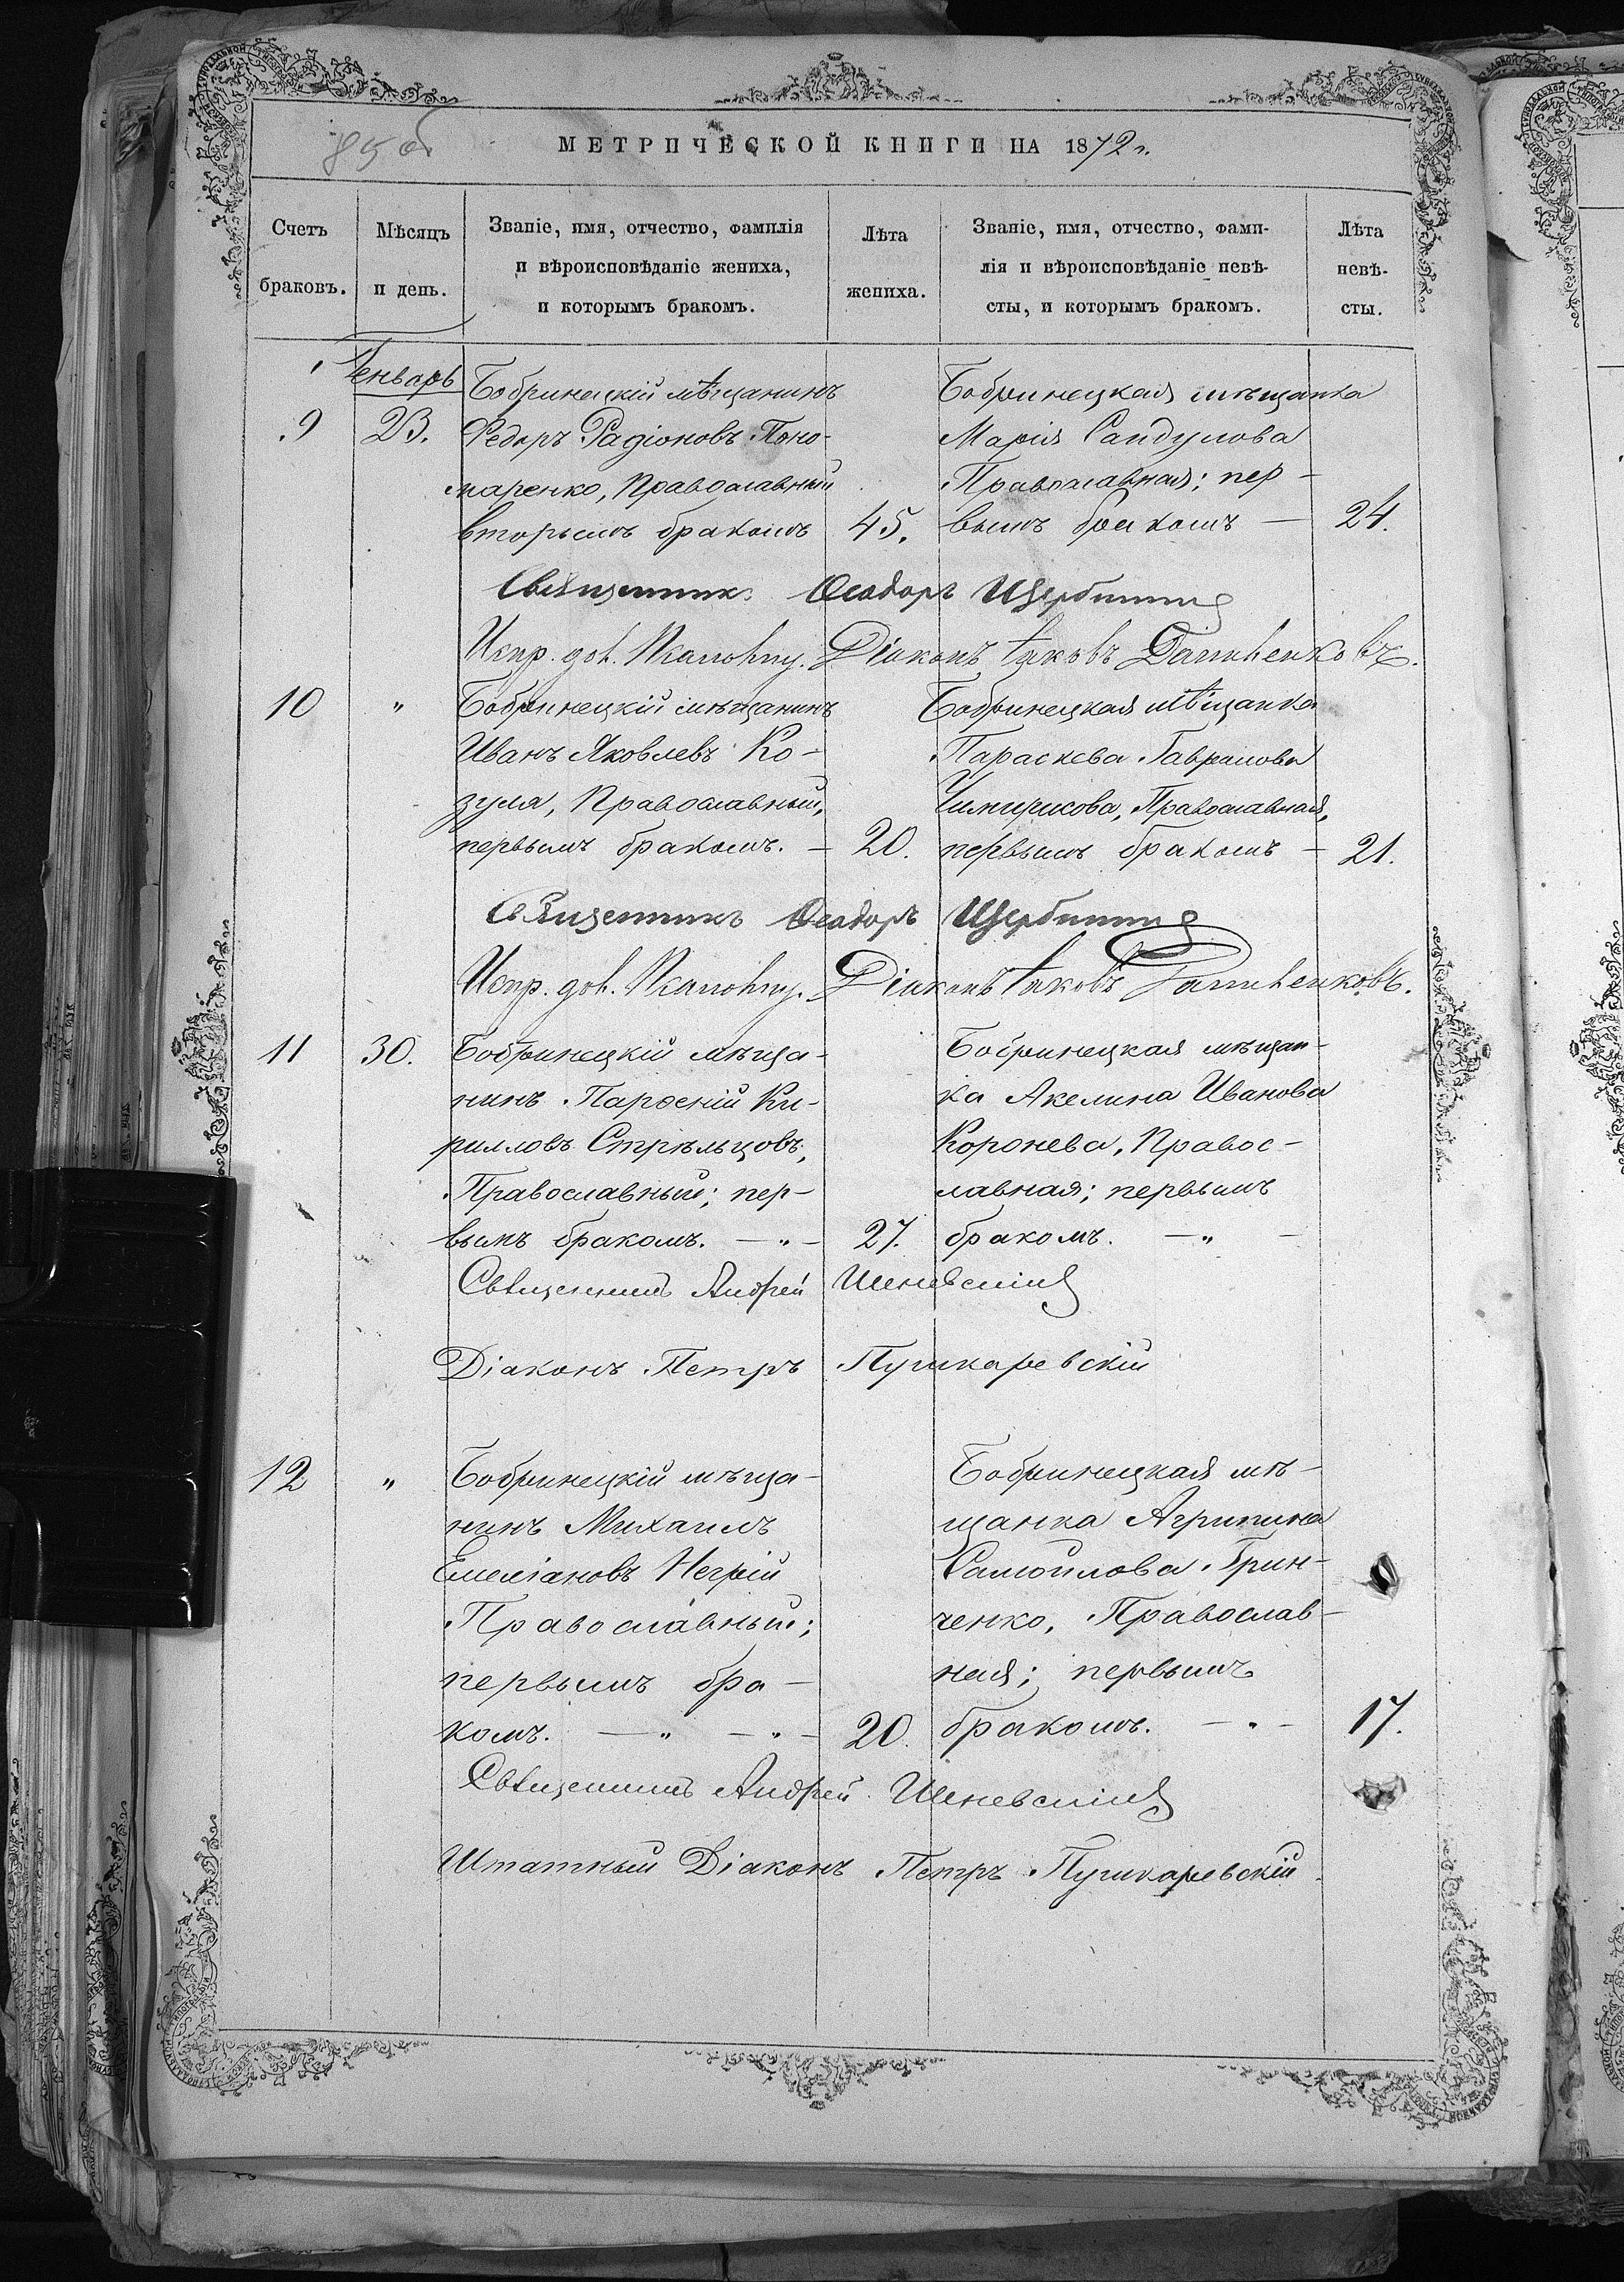 85 об
МЕТРИЧЕСКОЙ КНИГИ НА 1872 г.
Счетъ браковъ.
Мѣсяцъ и день.
Званіе, имя, отчество, фамилія
и вѣроисповѣданіе жениха,
и которымъ бракомъ.
Лѣта жениха.
Званіе, имя, отчество, фами-
лія и вѣроисповѣданіе невѣ-
сты, и которымъ бракомъ.
Лѣта невѣ-
сты.
Январь
9
23.
Бобринецкій мѣщанинъ
Федоръ Радіоновъ Поно-
маренко, Православный
вторымъ бракомъ
45.
Бобринецкая мѣщанка
Марія Сандулова
Православная; пер-
вымъ бракомъ —
24.
Священникъ Ѳеодоръ
Испр. дол. Діаконъ Іаковъ
10
"
Бобринецкій мѣщанинъ
Иванъ Яковлевъ Ко-
зуля, Православный,
первымъ бракомъ. —
20.
Бобринецкая мѣщанка
Параскева Гаврилова
Православная,
первымъ бракомъ —
21.
Священникъ Ѳеодоръ
Испр. дол. Діаконъ Іаковъ
11
30.
Бобринецкій мѣща-
нинъ Парѳеній Ки-
рилловъ Стрѣльцовъ,
Православный; пер-
вымъ бракомъ. — " —
27.
Бобринецкая мѣщан-
ка Акелина Иванова
Коронева, Правос-
лавная; первымъ
бракомъ. — " —
Священникъ Андрей
Діаконъ Петръ Пушкаревскій
12
"
Бобринецкій мѣща-
нинъ Михаилъ
Емеліановъ Негрій
Православный;
первымъ бра-
комъ. — " — " —
20.
Бобринецкая мѣ-
щанка Агрипина
Самойлова Грин-
ченко, Православ-
ная; первымъ
бракомъ. — " —
17.
Священникъ Андрей
Штатный Діаконъ Петръ Пушкаревскій.